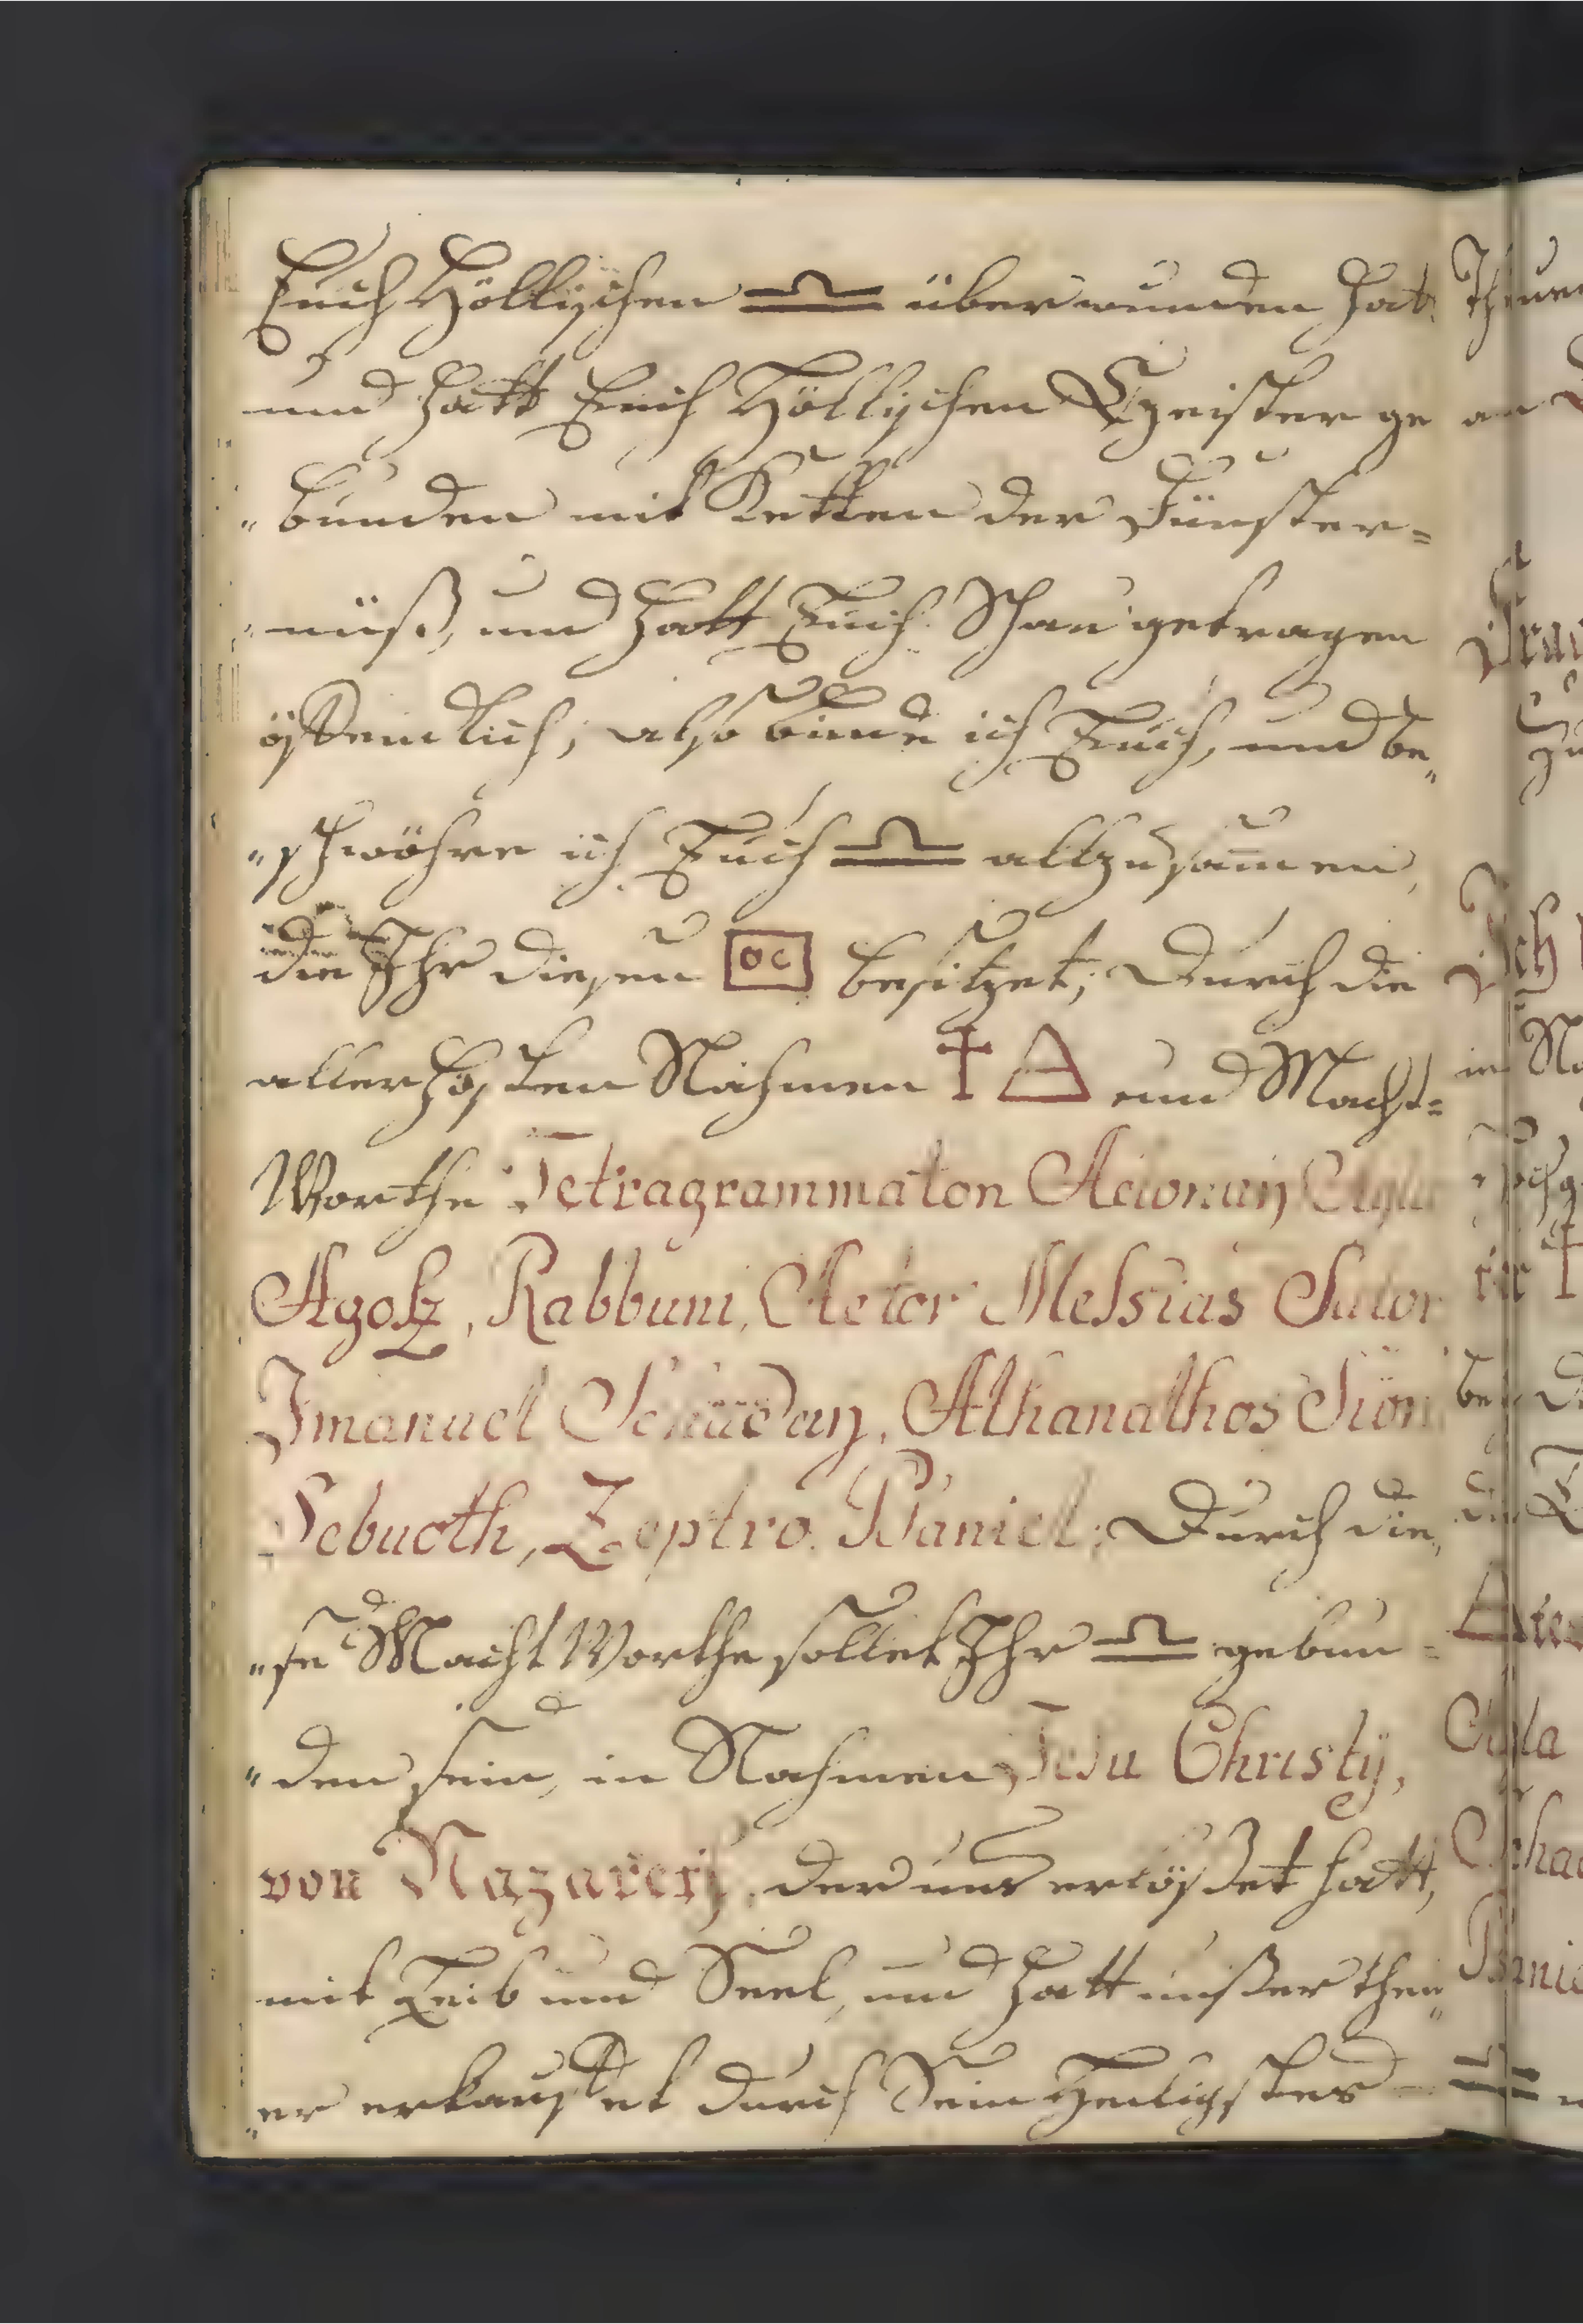 Euch Höllischen ♎ überwunden hat
und hatt Euch Höllischen Geister ge
"bunden mit Ketten der Fünster=
"nüß, und hatt Euch Schau getragen
öffendlich, also binde ich Euch, und be"
"schwöhre ich Euch ♎ allzusam̄en,
die Ihr diesen besitzet; Durch die
allerhösten Nahmen † und Macht=
Worthe Tetragrammaton Adonay Agla
Rabbuni, Messias Sutor
Imanuel Athanathos Sion
Sebuoth, Zeptro. Daniel; Durch die,
"se Macht Worthe sollet Ihr ♎ gebun=
"den sein, in Nahmen Jesu Christÿ,
von Nazareth, der uns erlößet hatt,
mit Leib und Seel, und hatt unßer theu"
"er erkauffet durch Sein Heiligstes